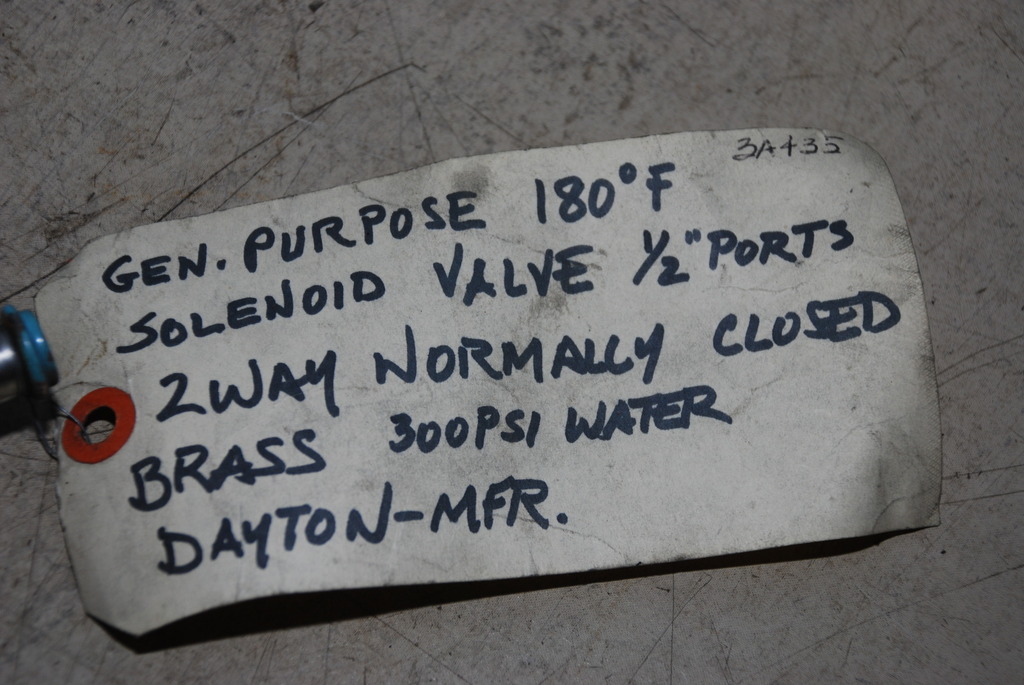 3A435
GEN. PURPOSE 180°F
SOLENOID VALVE 1/2" PORTS
2 WAY NORMALLY CLOSED
BRASS 300PSI WATER
DAYTON-MFR.